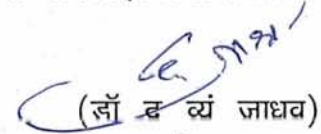 (डॉ द व्यं जाधव)